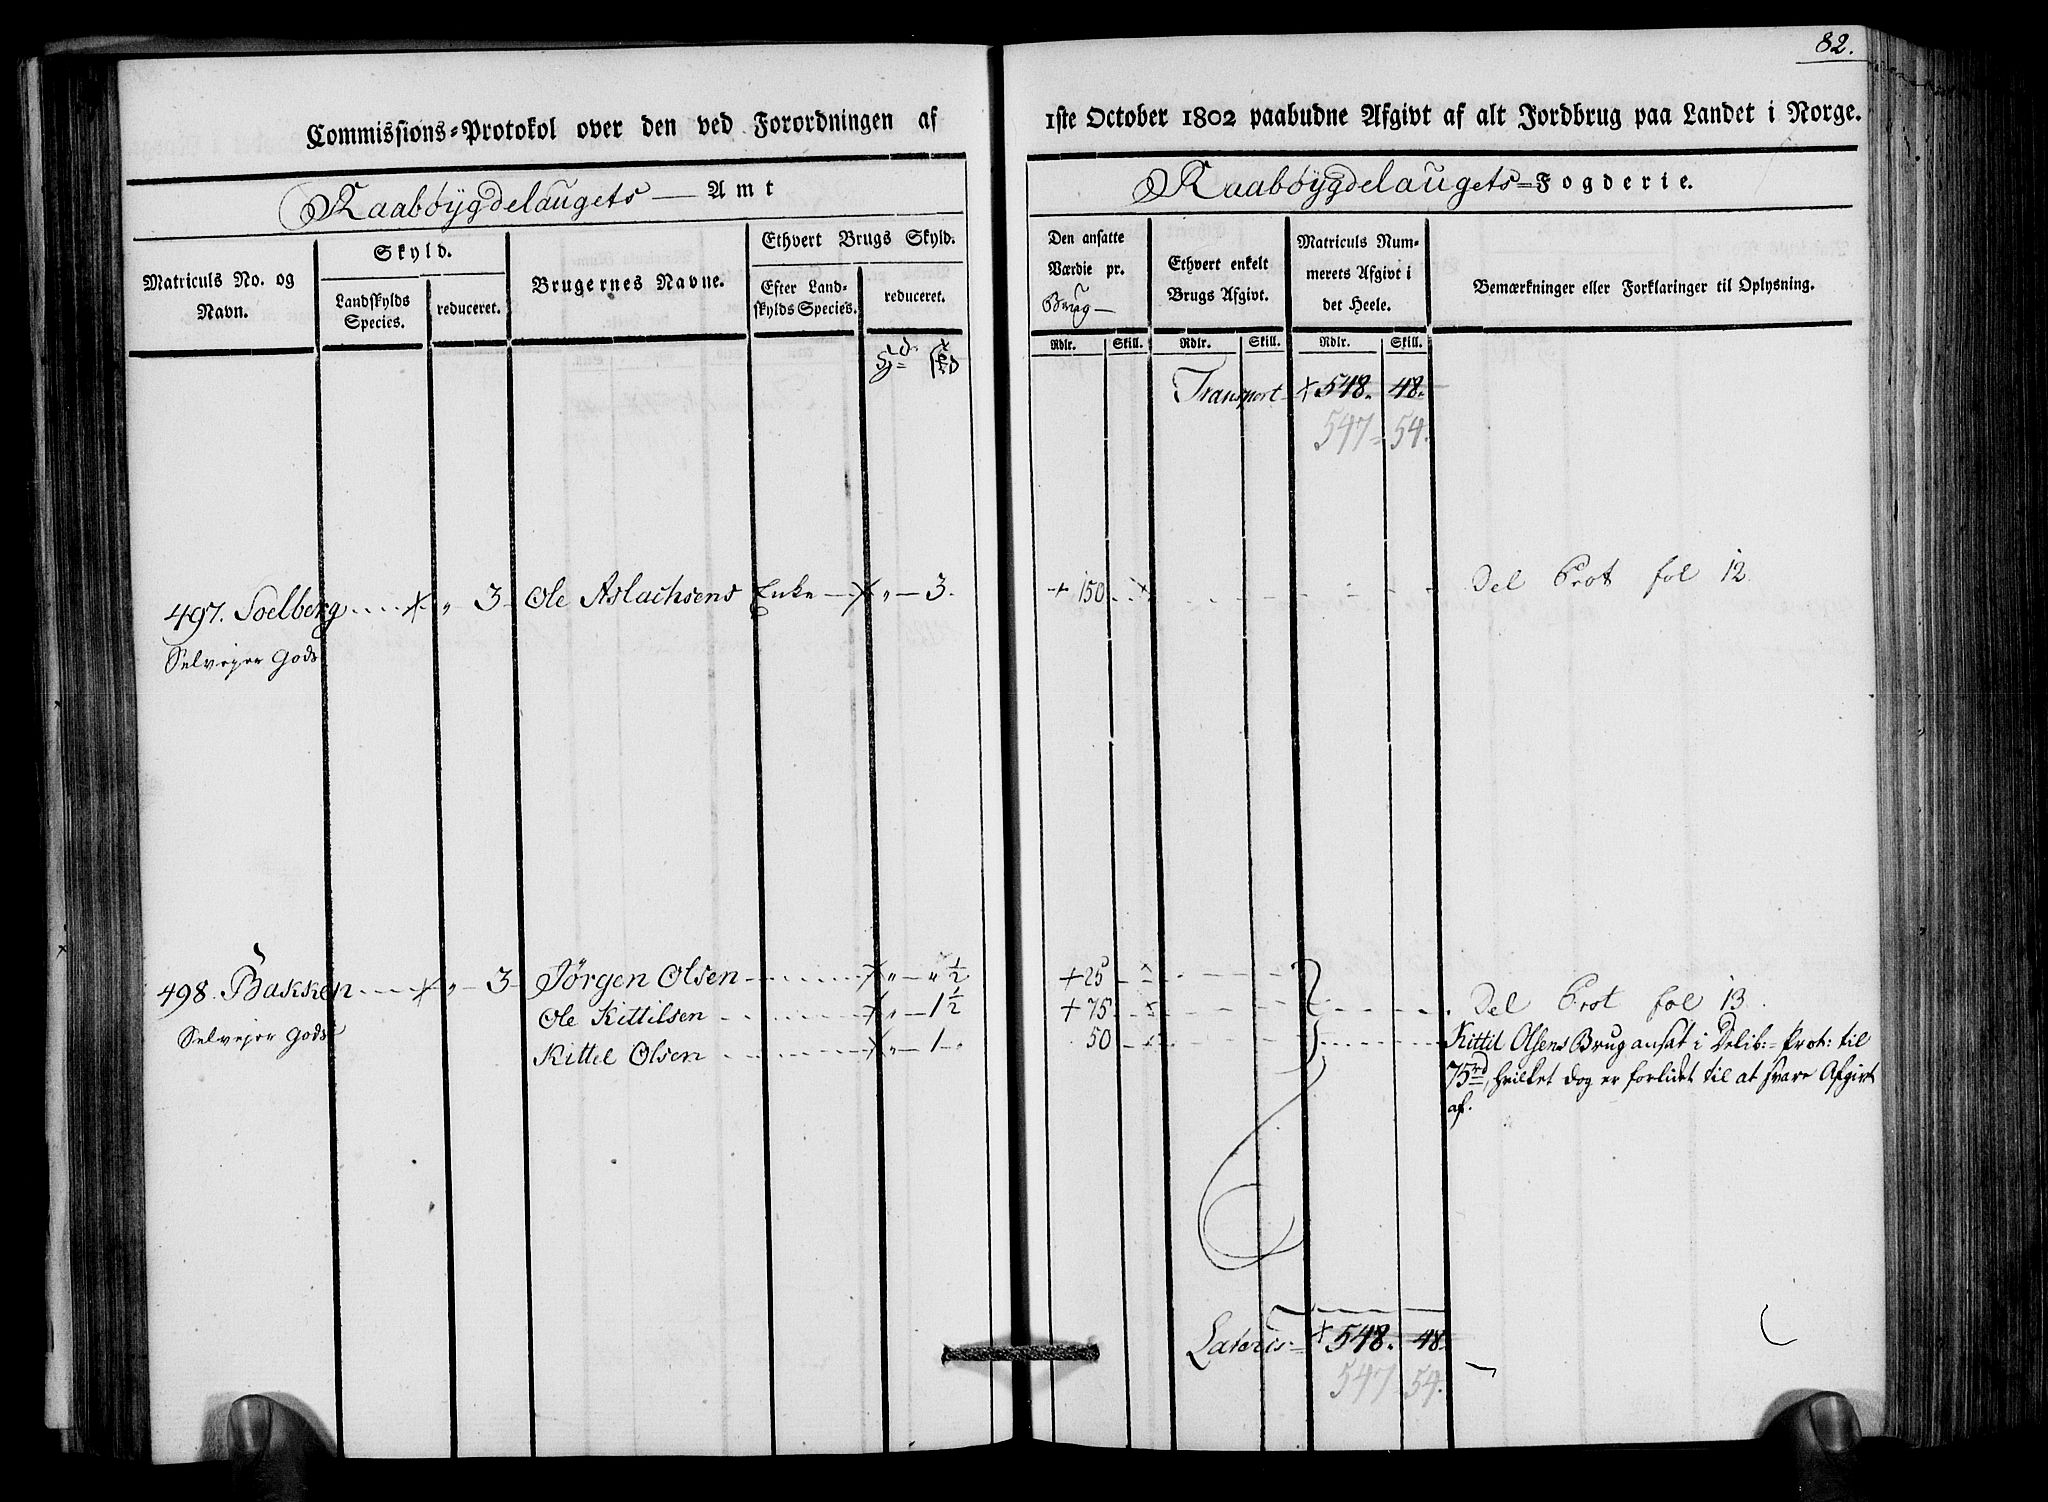 82.
Commissions=Protokol over den ved Forordningen af 1ste October 1802 paabudne Afgivt af alt Jordbrug paa Landet i Norge.
Raabøygdelaugets — Amt
Raabøygdelaugets = Fogderie.
Matriculs No. og Navn.
Skyld.
Landskylds Species.
reduceret.
Brugernes Navne.
Ethvert Brugs Skyld.
Efter Landskylds Species.
reduceret.
Den ansatte Værdie pr. Brug —
Ethvert enkelt Brugs Afgivt.
Matriculs Nummerets Afgivt i det Heele.
Bemærkninger eller Forklaringer til Oplysning.
Rdlr. Skill. Rdlr. Skill. Rdlr. Skill.
Transport + 548. 48.
547 = 54.
497. Soelberg + „ 3 Ole Aslachsens Enke + „ — 3. + 150 Del Prot fol 12
Selvejer Gods
498. Bakken + „ 3 Jörgen Olsen + „ — „ ½ + 25 Del Prot fol 13.
Ole Kittilsen + „ — 1 ½ + 75
Selvejer Gods
Kittel Olsen + „ — 1 50 Kittil Olsens Brug ansat i Delib:= Prot: til
75 rd, hvilket dog er forlidet til at svare Afgivt
af.
Lateris = + 548. 48.
547 54.